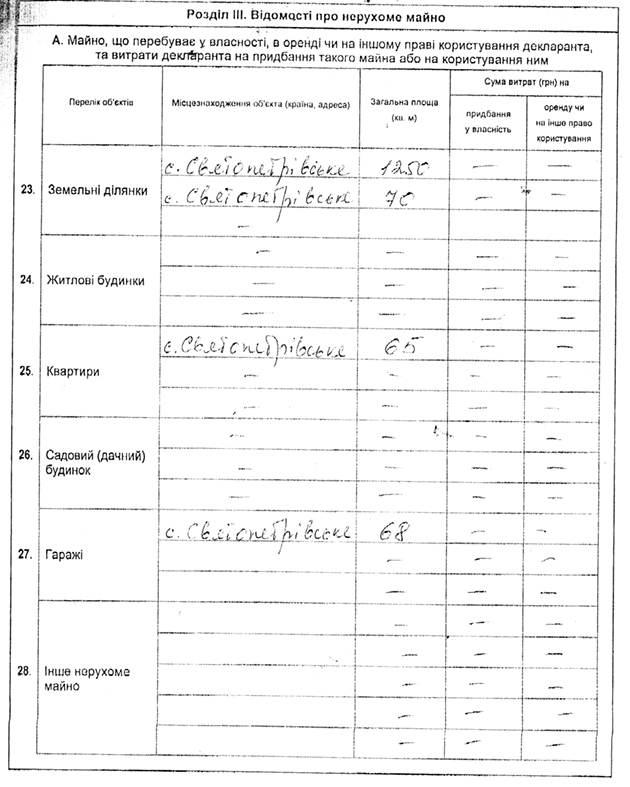 Розділ III. Відомості про нерухоме майно
А. Майно, що перебуває у власності, в оренді чи на іншому праві користування декларанта,
та витрати декларанта на придбання такого майна або на користування ним
Перелік об'єктів
Місцезнаходження об'єкта (країна, адреса)
Загальна площа
(кв. м)
Сума витрат (грн) на
придбання
у власність
оренду чи
на інше право
користування
23. Земельні ділянки
с. Святопетрівське 1250 — —
с. Святопетрівське 70 — —
—
24. Житлові будинки
— — — —
— — — —
— — — —
25. Квартири
с. Святопетрівське 65 — —
— — — —
— — — —
26. Садовий (дачний)
будинок
— — — —
— — — —
— — — —
27. Гаражі
с. Святопетрівське 68 — —
— — —
— — —
28. Інше нерухоме
майно
— — —
— — —
— — —
— — —
— — —